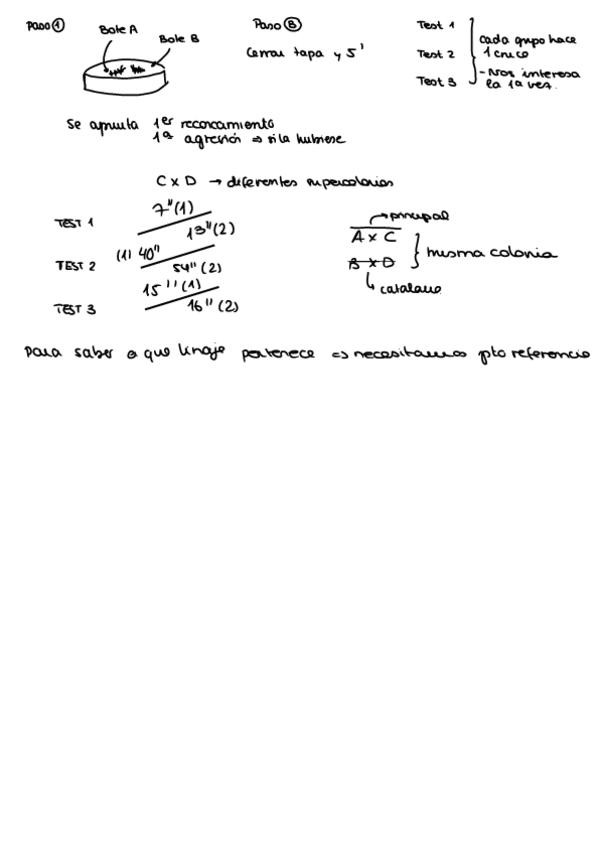 Paso ①
Bote A
Bote B
Paso Ⓑ
Cerrar tapa y 5'
Test 1
Test 2
Test 3
cada grupo hace
1 cruce
- Nos interesa
la 1ª vez.
Se apunta 1er reconocimiento
1ª agresión ⇒ si la hubiese
C x D → diferentes supercolonias
TEST 1
7" (1)
13" (2)
TEST 2
(1) 40"
54" (2)
TEST 3
15'' (1)
16'' (2)
→ principal
A x C
B x D
misma colonia
↳ catalana
Para saber a que linaje pertenece ⇒ necesitamos pto referencia